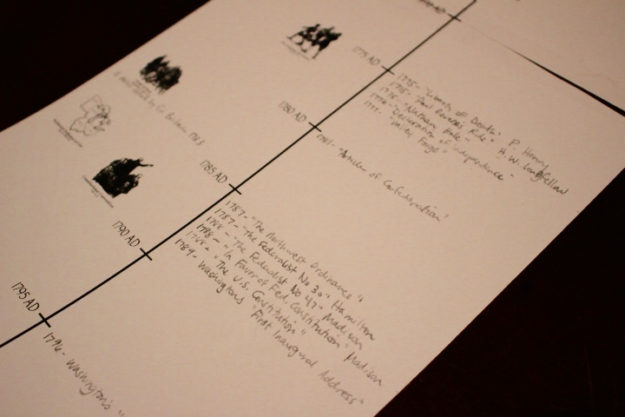 1775 AD
1775- "Liberty or Death" P. Henry
1775- "Paul Revere's Ride" H.W. Longfellow
1776- "Nathan Hale"
1776- "Declaration of Independence"
1777- "Valley Forge"
1780 AD
1781- "Articles of Confederation"
by Gr. Britain 1783
1785 AD
1787- "The Northwest Ordinance"
1787- "The Federalist No 30" Hamilton
1788- "The Federalist No 47" Madison
1788- "In Favor of Fed. Constitution" Madison
"The U.S. Constitution"
1789- Washington's "First Inaugural Address"
1790 AD
1795 AD
1796- Washington's "